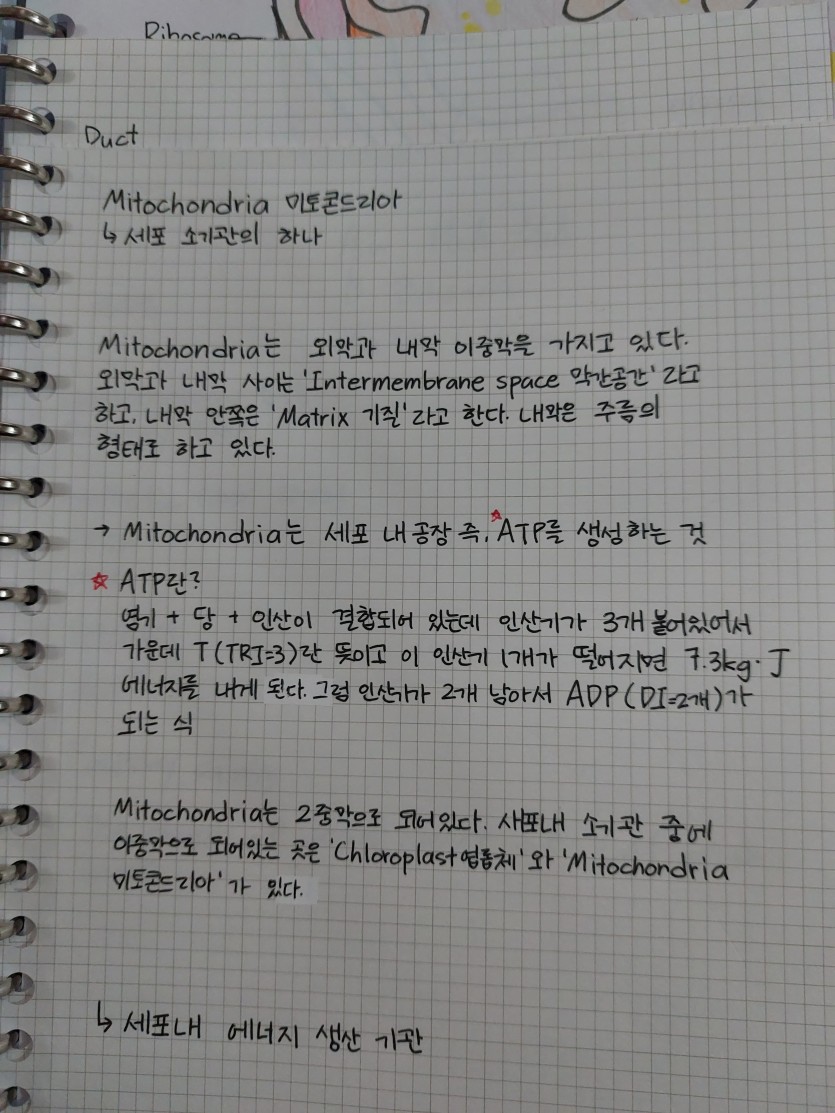 Ribosome
Duct
Mitochondria 미토콘드리아
↳ 세포 소기관의 하나
Mitochondria는 외막과 내막 이중막을 가지고 있다.
외막과 내막 사이는 'Intermembrane space 막간공간' 라고
하고, 내막 안쪽은 'Matrix 기질' 라고 한다. 내막은 주름의
형태로 하고 있다.
→ Mitochondria는 세포 내 공장 즉, ☆ATP를 생성하는 것
☆ ATP란?
염기 + 당 + 인산이 결합되어 있는데 인산기가 3개 붙어있어서
가운데 T (TRI=3)란 뜻이고 이 인산기 1개가 떨어지면 7.3kg·J
에너지를 내게 된다. 그럼 인산가가 2개 남아서 ADP (DI=2개)가
되는 식
Mitochondria는 2중막으로 되어있다. 사포내 소기관 중에
이중막으로 되어있는 곳은 'Chloroplast 엽록체' 와 'Mitochondria
미토콘드리아' 가 있다.
↳ 세포내 에너지 생산 기관